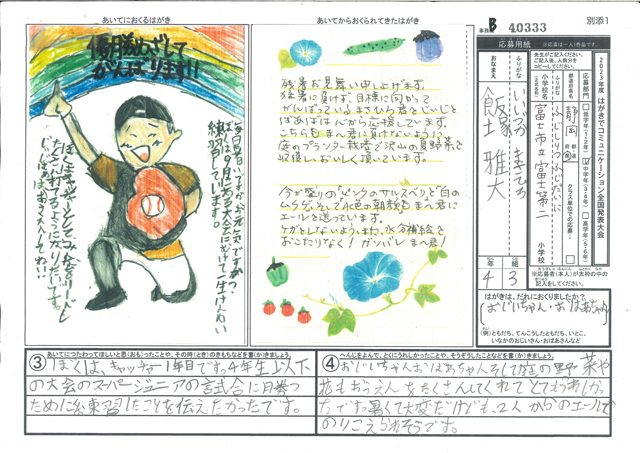 あいてにおくるはがき
優勝めざして
がんばります!!
毎日暑いですね。お元気ですか?
ぼくは9月にある大会にむけて一生けん命
練習しています。
ぼくはキャッチャーとしてみんなをリードし
じいじ、ばあばもおうえんしてね!!
あいてからおくられてきたはがき
残暑お見舞い申し上げます。
猛暑に負けず、目標に向かって
がんばっているまさひろ君を、じいじと
ばあばは心から応援しています。
こちらもまー君に負けないように
庭のプランター栽培で沢山の夏野菜を
収穫しおいしく頂いています。
今が盛りのピンクのサルスベリと白の
ムクゲ、そして水色の朝顔もまー君に
エールを送っています。
ケガをしないよう、また、水分補給を
おこたりなく! ガンバレまー君!
事務局 B 40333
別添1
応募用紙
※応募は一人1作品です。
先生がご記入ください。
ご記入後、人数分を
コピーしてください。
2021年度 はがきでコミュニケーション 全国発表大会
応募部門
低学年(1・2年)
中学年(3・4年)
高学年(5・6年)
都道府県名
静岡
クラス単位での応募:
ふりがな
小学校名
富士市立富士第二
小学校
ふりがな
おなまえ
いいづか まさひろ
飯塚 雅大
年 組
4 3
※応募者(本人)が太枠の中の
記入をしてください。
はがきは、だれにおくりましたか?
(おじいちゃん・おばあちゃん)
(例)ともだち、てんこうしたともだち、いとこ、
いなかのおじいさん・おばあさんなど
③ あいてにつたわってほしいと思(おも)ったことや、その時(とき)のきもちなどを書(か)きましょう。
ぼくは、キャッチャー1年目です。4年生以下
の大会のスーパージュニアの試合に月巻つ
ために練習したことを伝えたかったです。
④ へんじをよんで、とくにうれしかったことや、そうぞうしたことなどを書(か)きましょう。
おじいちゃんおばあちゃんそして庭の野菜や
花もおうえんをたくさんしてくれてとてもうれしかっ
たです。暑くて大変だけども、2人からのエールで
のりこえられそうです。